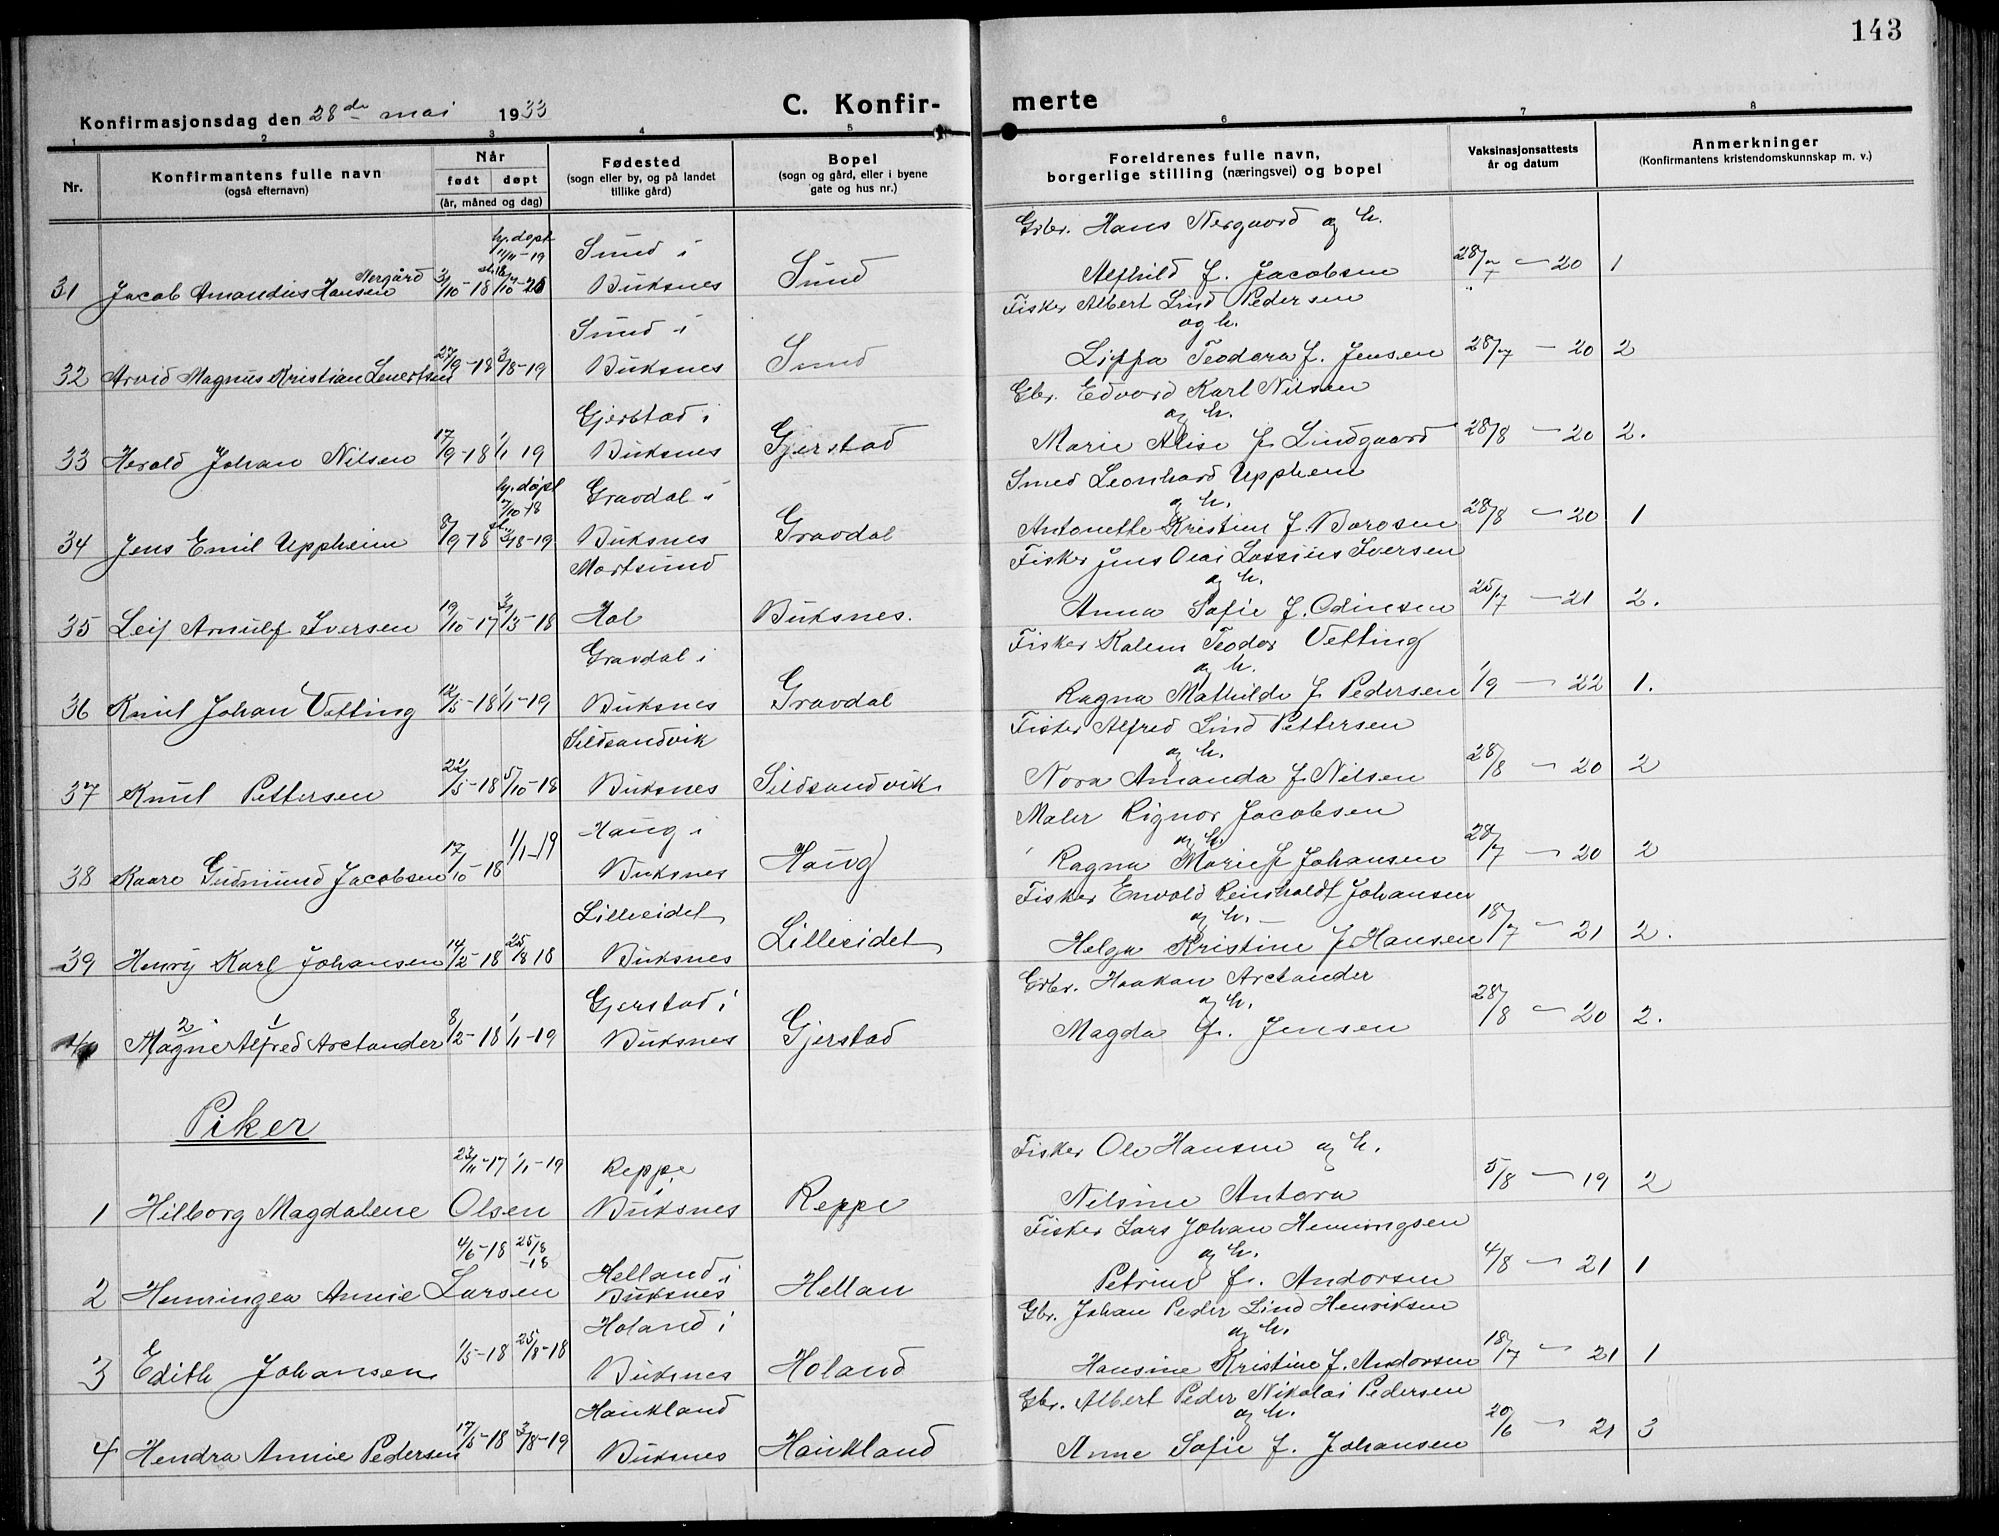 143
Konfirmasjonsdag den 28de mai 1933
C. Konfir- merte
1 2 3 4 5 6 7 8
Nr.
Konfirmantens fulle navn
(også efternavn)
Når
født døpt
(år, måned og dag)
Fødested
(sogn eller by, og på landet
tillike gård)
Bopel
(sogn og gård, eller i byene
gate og hus nr.)
Foreldrenes fulle navn,
borgerlige stilling (næringsvei) og bopel
Vaksinasjonsattests
år og datum
Anmerkninger
(Konfirmantens kristendomskunnskap m. v.)
hj. døpt
11/11-19
Sund i
Grbr. Hans Nergaard og h.
Nergård
31 Jacob Amandius Hansen 3/10-18 Buksnes Sund Alfhild f. Jacobsen 28/7 - 20 1
Sund i
Fisker Albert Lind Pedersen
og h.
32 Arvid Magnus Kristian Lenertsen 27/9-18 3/8-19 Buksnes Sund Lippa Teodora f. Jensen 28/7 - 20 2
Gjerstad i
Gbr. Edvard Karl Nilsen
og h.
33 Herald Johan Nilsen 17/9-18 1/1 19 Buksnes Gjerstad Marie Alise f. Lindgaard 28/8 - 20 2.
hj. døpt
7/10-18
Gravdal i
Smed Leonhard Uppheim
og h.
34 Jens Emil Uppheim 8/9-18 st. 3/8-19 Buksnes Gravdal Antonette Kristine f. Borosen 28/8 - 20 1
Mortsund
Fisker Jens Olai Lassius Iversen
og h.
35 Leif Arnulf Iversen 19/10-17 3/3-18 Hol Buksnes. Anna Sofie f. Odinsen 25/7 - 21 2.
Gravdal i
Fisker Kalem Teodor Vetting
og h.
36 Knut Johan Vetting 12/5-18 1/1-19 Buksnes Gravdal Ragna Mathilde f Pedersen 1/9 - 22 1.
Sildsandvik
Fisker Alfred Lind Pettersen
og h.
37 Knut Pettersen 22/5-18 5/10-18 Buksnes Sildsandvik Nora Amanda f. Nilsen 28/8 - 20 2
Haug i
Maler Rignor Jacobsen
og h.
38 Kaare Gudmund Jacobsen 17/10-18 1/1-19 Buksnes Haug Ragna Marie f Johansen 28/7 - 20 2
Lilleeidet
Fisker Envald Reinholdt Johansen
og h.
39 Henry Karl Johansen 14/2-18 25/8 18 Buksnes Lilleeidet Helga Kristine f Hansen 18/7 - 21 2.
Gjerstad i
Grbr. Haakon Arctander
og h.
2 1
40 Magne Alfred Arctander 8/2-18 1/1-19 Buksnes Gjerstad Magda f. Jensen 28/8 - 20 2.
Piker
23/11-17 1/1-19 Reppe i
Fisker Ole Hansen og h.
1 Hilborg Magdalene Olsen Buksnes Reppe Nilsine Antora 5/8 - 19 2
4/6-18 25/8-18 Helland i
Fisker Lars Johan Henningsen
og h.
2 Henningea Annie Larsen Buksnes Hellan Petrine f. Andorsen 4/8 - 21 1
Holand i
Gbr. Johan Peder Lind Henriksen
og h.
3 Edith Johansen 1/5-18 25/8-18 Buksnes Holand Hansine Kristine f. Andorsen 18/7 - 21 1
Haukland
Gbr. Albert Peder Nikolai Pedersen
og h.
4 Hendra Annie Pedersen 17/5-18 3/8-19 Buksnes Haukland Anne Sofie f. Johansen 20/6 - 21 3